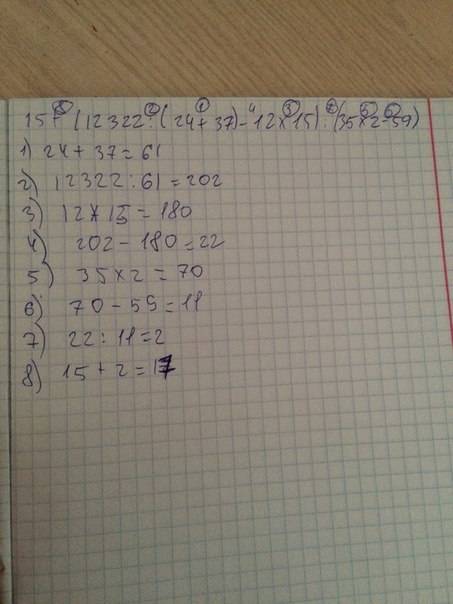 15+(12322:(24+37)-12×15):(35×2-59)
1) 24+37=61
2) 12322:61=202
3) 12×15=180
4) 202-180=22
5) 35×2=70
6) 70-59=11
7) 22:11=2
8) 15+2=17